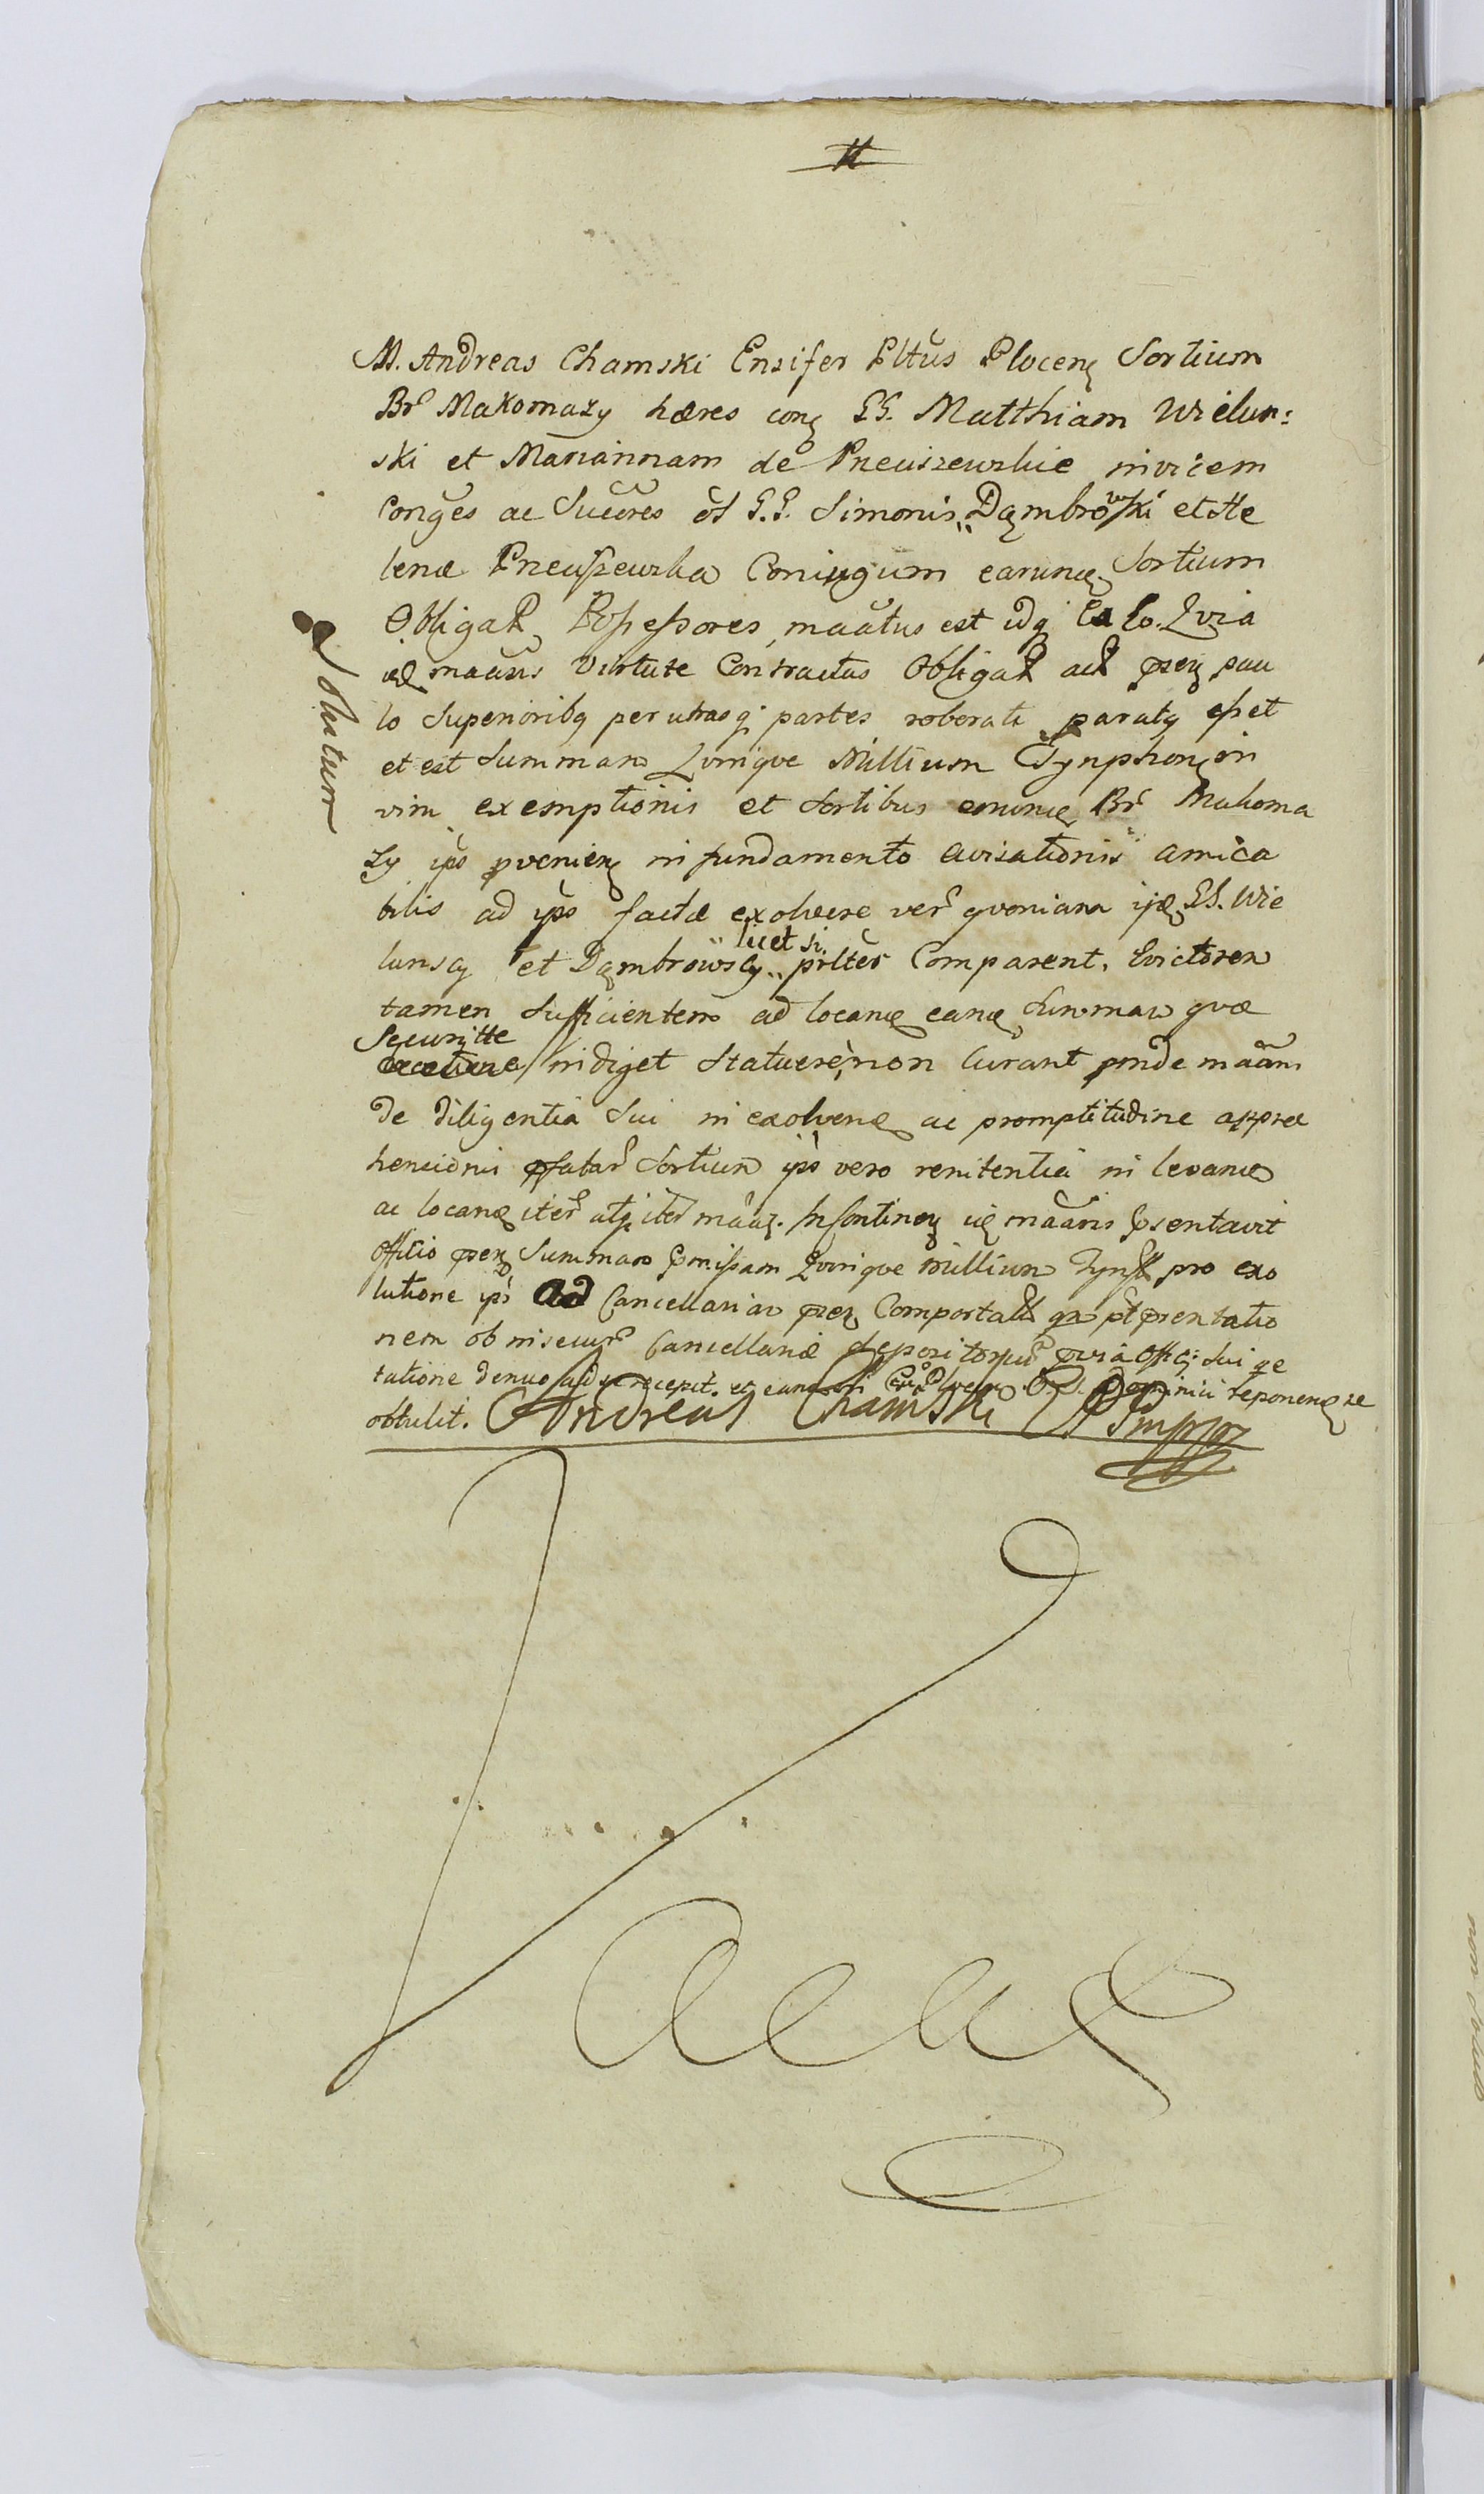 M. Andreas Chamski Ensifer Pltus Plocenȩ Sortium
Br Makomazy hæres conȩ GG. Matthiam Wielun:
ski et Mariannam de Pneuszewskie invicem
Conges ac Succres GG. Simonis Dąmbrowski et He
lenæ Pneuszewska Coniugum earunȩ Sortium
Obligat Possessores maatus est idq Ea Eo. Qvia
idȩ maans virtute Contractus Obligat act prȩ pau
lo Superioribq per utrasq partes roborati paratq esset
et est Summam Qvinqve Millium Tynphonȩ in
vim exemptionis et Sortibus earunȩ Br Makoma
zy ips pvenienȩ in fundamento avisationis amica
bilis ad ips factæ exolvere ver qvoniam ijdȩ GG. Wie
lunscy et Dąmbrowscy licet si prltes Comparent, Evictorem
tamen Sufficientem ad locanȩ eanȩ Summam qvæ
Securitte indiget Statuere non Curant proinde maans
de diligentia Sui in exolvenȩ ac promptitudine appræ
hensionis pfatar Sortium ips vero renitentia in levanȩ
ac locanȩ iter atq iter maaȩ. In Continenȩ idȩ maans psentavit
Officio prȩ Summam pmissam Qvinqve millium Tynf pro exo
lutione ips ad Cancellariam prȩ Comportat post psentatio
nem ob insecur Cancellariæ qvia Offi Sui
tatione denuo ad se recepit et reponenȩ se
obtulit. Andreas Chamski